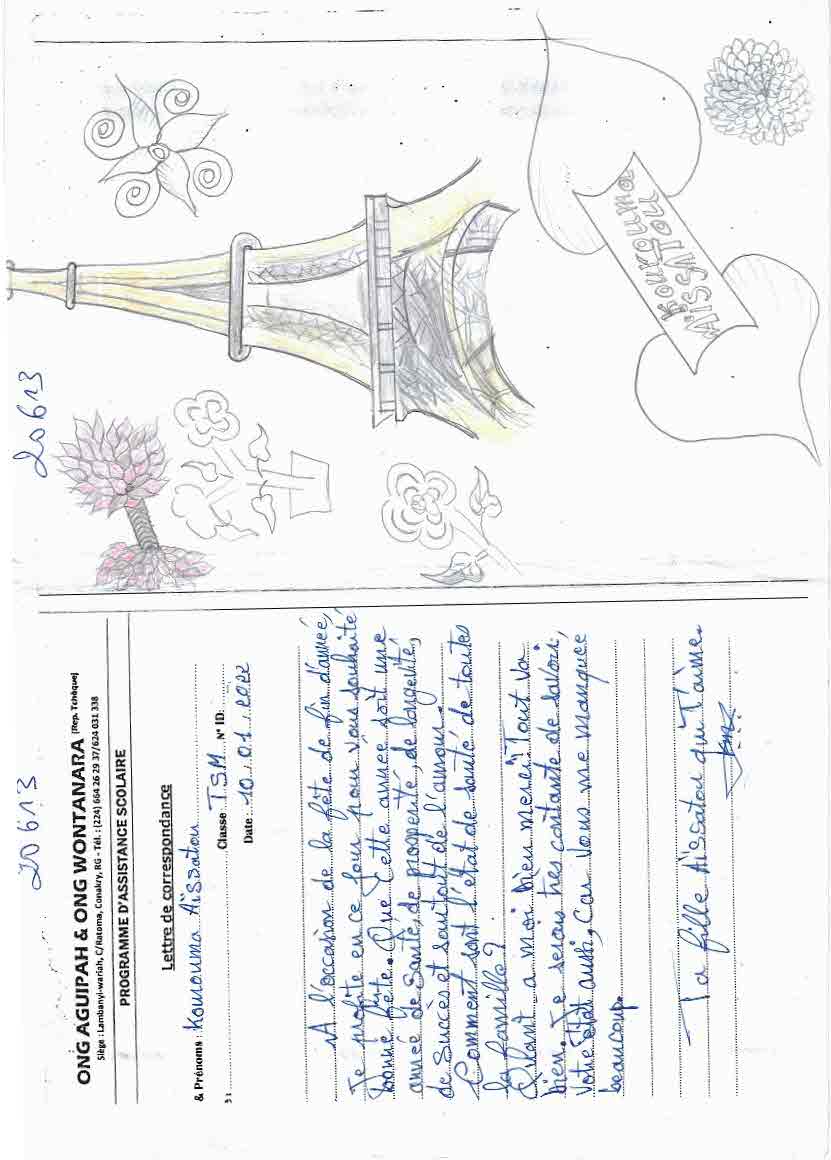 20613
ONG AGUIPAH & ONG WONTANARA (Rep. Tchèque)
Siège : Lambanyi-wariah, C/Ratoma, Conakry, RG - Tél. : (224) 664 26 29 37/624 631 338
PROGRAMME D'ASSISTANCE SCOLAIRE
Lettre de correspondance
& Prénoms : Kourouma Aïssatou
Classe TSM N° ID:
Date : 10.01.2022
A l'occasion de la fête de fin d'année,
Je profite en ce jour pour vous souhaité
bonne fête. Que cette année soit une
année de Santé, de prosperité, de longevité,
de Succès et surtout de l'amour.
Comment sont l'état de santé de toutes
la famille?
Quant a moi bien merci. Tout va
bien. Je serais tres contante de savoir,
votre état aussi, Car vous me manquee
beaucoup.
Ta fille Aïssatou qui T'aime.
20613
Kourouma
AïSSATOU